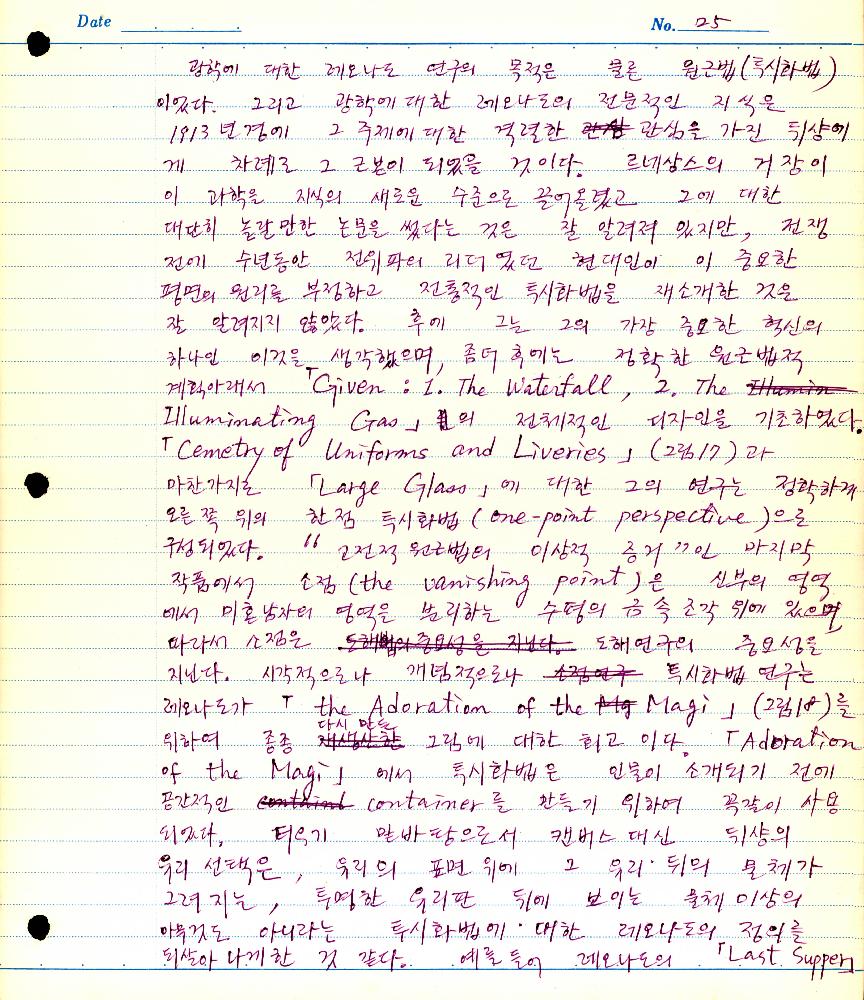 Date No. 25
광학에 대한 레오나도 연구의 목적은 물론 원근법(특시화법)
이었다. 그리고 광학에 대한 레오나도의 전문적인 지식은
1913년경에 그 주제에 대한 격렬한 관심을 가진 뒤샹에
게 차례로 그 근본이 되었을 것이다. 르네상스의 거장이
이 과학을 지식의 새로운 수준으로 끌어올렸고 그에 대한
대단히 놀랄만한 논문을 썼다는 것은 잘 알려져 있지만, 전쟁
전에 수년동안 전위파의 리더였던 현대인이 이 중요한
평면의 원리를 부정하고 전통적인 특시화법을 재소개한 것은
잘 알려지지 않았다. 후에 그는 그의 가장 중요한 혁신의
하나인 이것을 생각했으며, 좀더 후에는 정확한 원근법적
계획아래서 「Given : 1. The Waterfall, 2. The
Illuminating Gas」의 전체적인 디자인을 기초하였다.
「Cemetry of Uniforms and Liveries」(그림17)과
마찬가지로 「Large Glass」에 대한 그의 연구는 정확하게
오른쪽 위의 한점 특시화법(one-point perspective)으로
구성되었다. "고전적 원근법의 이상적 증거"인 마지막
작품에서 소점(the vanishing point)은 신부의 영역
에서 미혼남자의 영역을 분리하는 수평의 금속조각 위에 있으며,
따라서 소점은 도해법의 중요성을 지닌다. 도해연구의 중요성을
지닌다. 시각적으로나 개념적으로나 소점연구 특시화법 연구는
레오나도가 「the Adoration of the Magi」(그림18)를
다시 만든
위하여 종종 재생산한 그림에 대한 회고이다. 「Adoration
of the Magi」에서 특시화법은 인물이 소개되기 전에
공간적인 container를 만들기 위하여 꼭같이 사용
되었다. 더욱기 맡바탕으로서 캔버스 대신 뒤샹의
유리 선택은, 유리의 표면 위에 그 유리 뒤의 물체가
그려지는, 투명한 유리판 뒤에 보이는 물체 이상의
아무것도 아니라는 투시화법에 대한 레오나도의 정의를
되살아나게 한 것 같다. 예를 들어 레오나도의 「Last Supper」